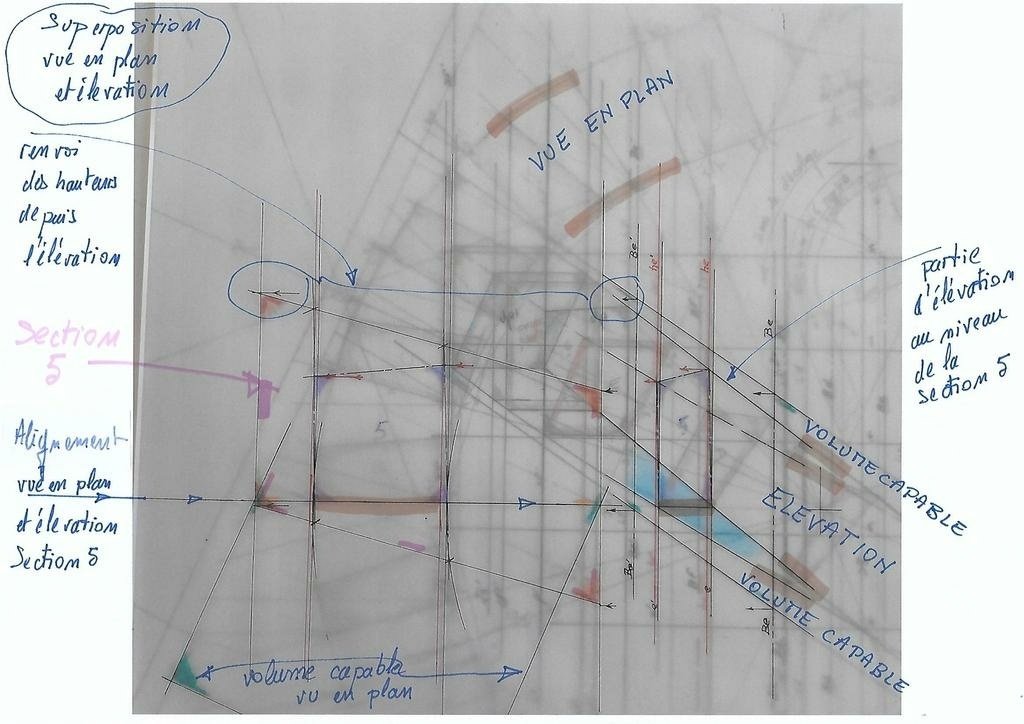 Superposition
vue en plan
et élévation
renvoi
des hauteurs
depuis
l'élévation
Section
5
Alignement
vue en plan
et élévation
Section 5
VUE EN PLAN
Be'
he'
he
Be
partie
d'élévation
au niveau
de la
section 5
5
5
VOLUME CAPABLE
ELEVATION
VOLUME CAPABLE
Be'
e'
e
Be
volume capable
vu en plan